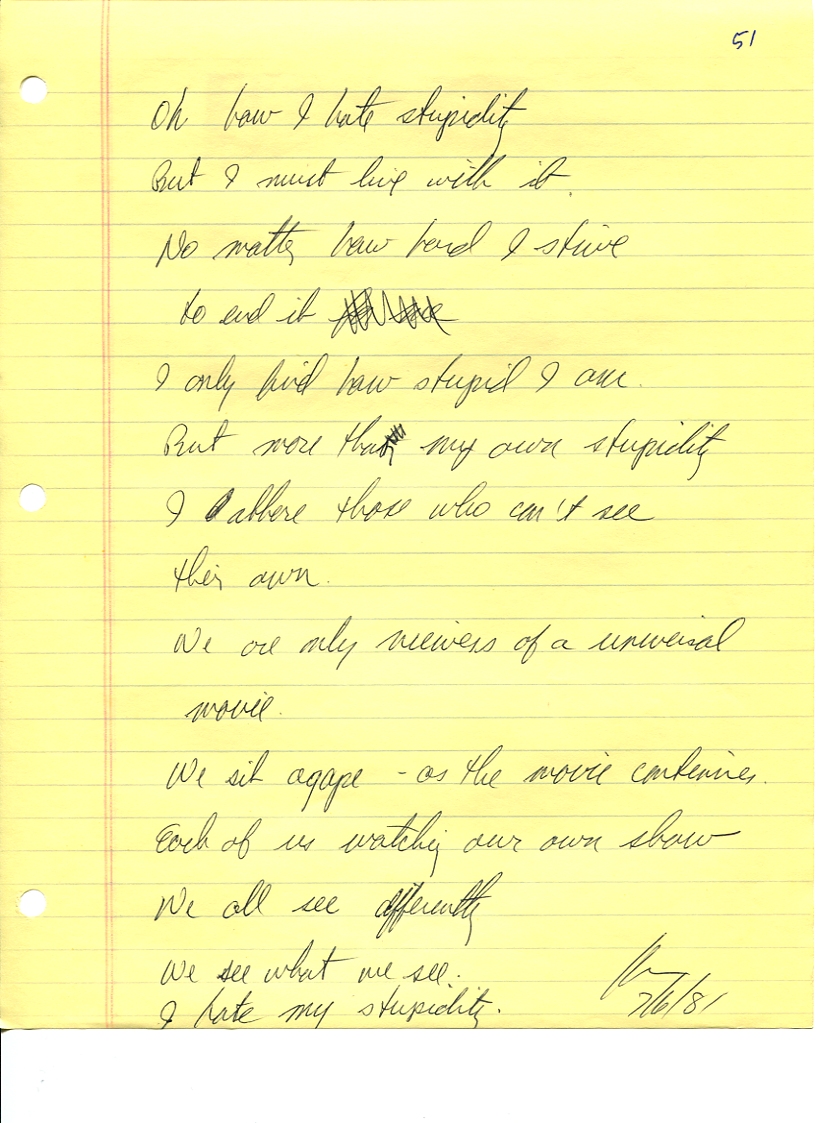 51
Oh how I hate stupidity
But I must live with it.
No matter how hard I strive
to end it
I only find how stupid I am.
But more than my own stupidity
I abhore those who can't see
their own.
We are only viewers of a universal
movie.
We sit agape - as the movie continues.
Each of us watching our own show
We all see differently
We see what we see.
I hate my stupidity.
7/6/81